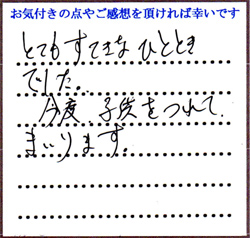 お気付きの点やご感想を頂ければ幸いです
とてもすてきなひととき
でした。
今度、子供をつれて
まいります。